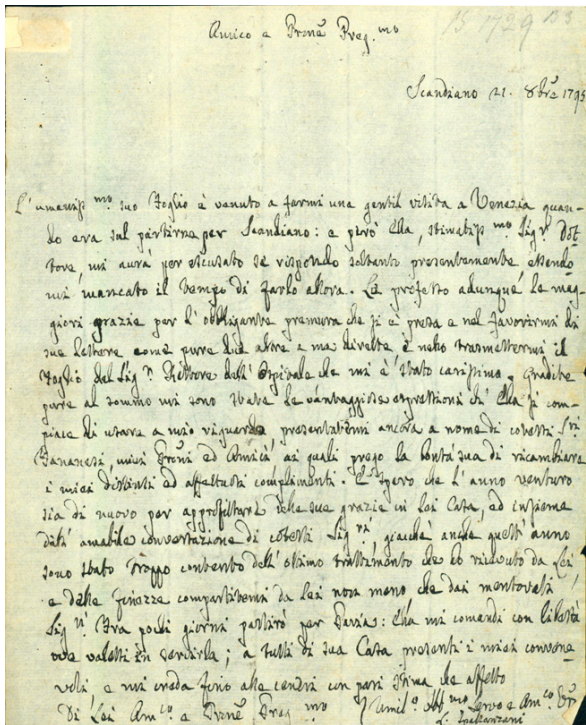 Amico e Prone Preg.mo
Scandiano 21. 8bre 1795
L'umaniss.mo suo Foglio è venuto a farmi una gentil visita a Venezia quan-
do era sul partirne per Scandiano: e però Ella, stimatiss.mo Sig.r Dot-
tore, mi aurà per escusato se rispondo soltanto presentemente essendo
mi mancato il tempo di farlo allora. Le professo adunque le mag-
giori grazie per l'obbligante premura che si è presa e nel favorirmi di
sue lettere come pure due altre a me dirette e nello trasmettermi il
Foglio del Sig.r Rettore dell'Ospitale che mi è stato carissimo. Gradite
pure al sommo mi sono state le vantaggiose espressioni ch'Ella si com-
piace di usare a mio riguardo presentatemi ancora a nome di cotesti Sri
Fananesi, miei Proni ed Amici ai quali prego la bontà sua di ricambiare
i miei distinti ed affettuosi complimenti. E spero che l'anno venturo
sia di nuovo per approfittare delle sue grazie in Lei Casa, ed insieme
dell'amabile conversazione di cotesti Sig.ri giacchè anche quest'anno
sono stato troppo contento dell'ottimo trattamento che ho ricevuto da Lei
e delle finezze compartitemi da Lei non meno che dai mentovati
Sig.ri. Fra pochi giorni partirò per Pavia: Ella mi comandi con libertà
ove valessi in servirla; a tutti di sua Casa presenti i miei convene
voli e mi creda fino alle ceneri con pari stima che affetto
Di Lei Am.co e Prone Preg.mo
Umil.o Obb.mo Servo e Am.co
L. Spallanzani